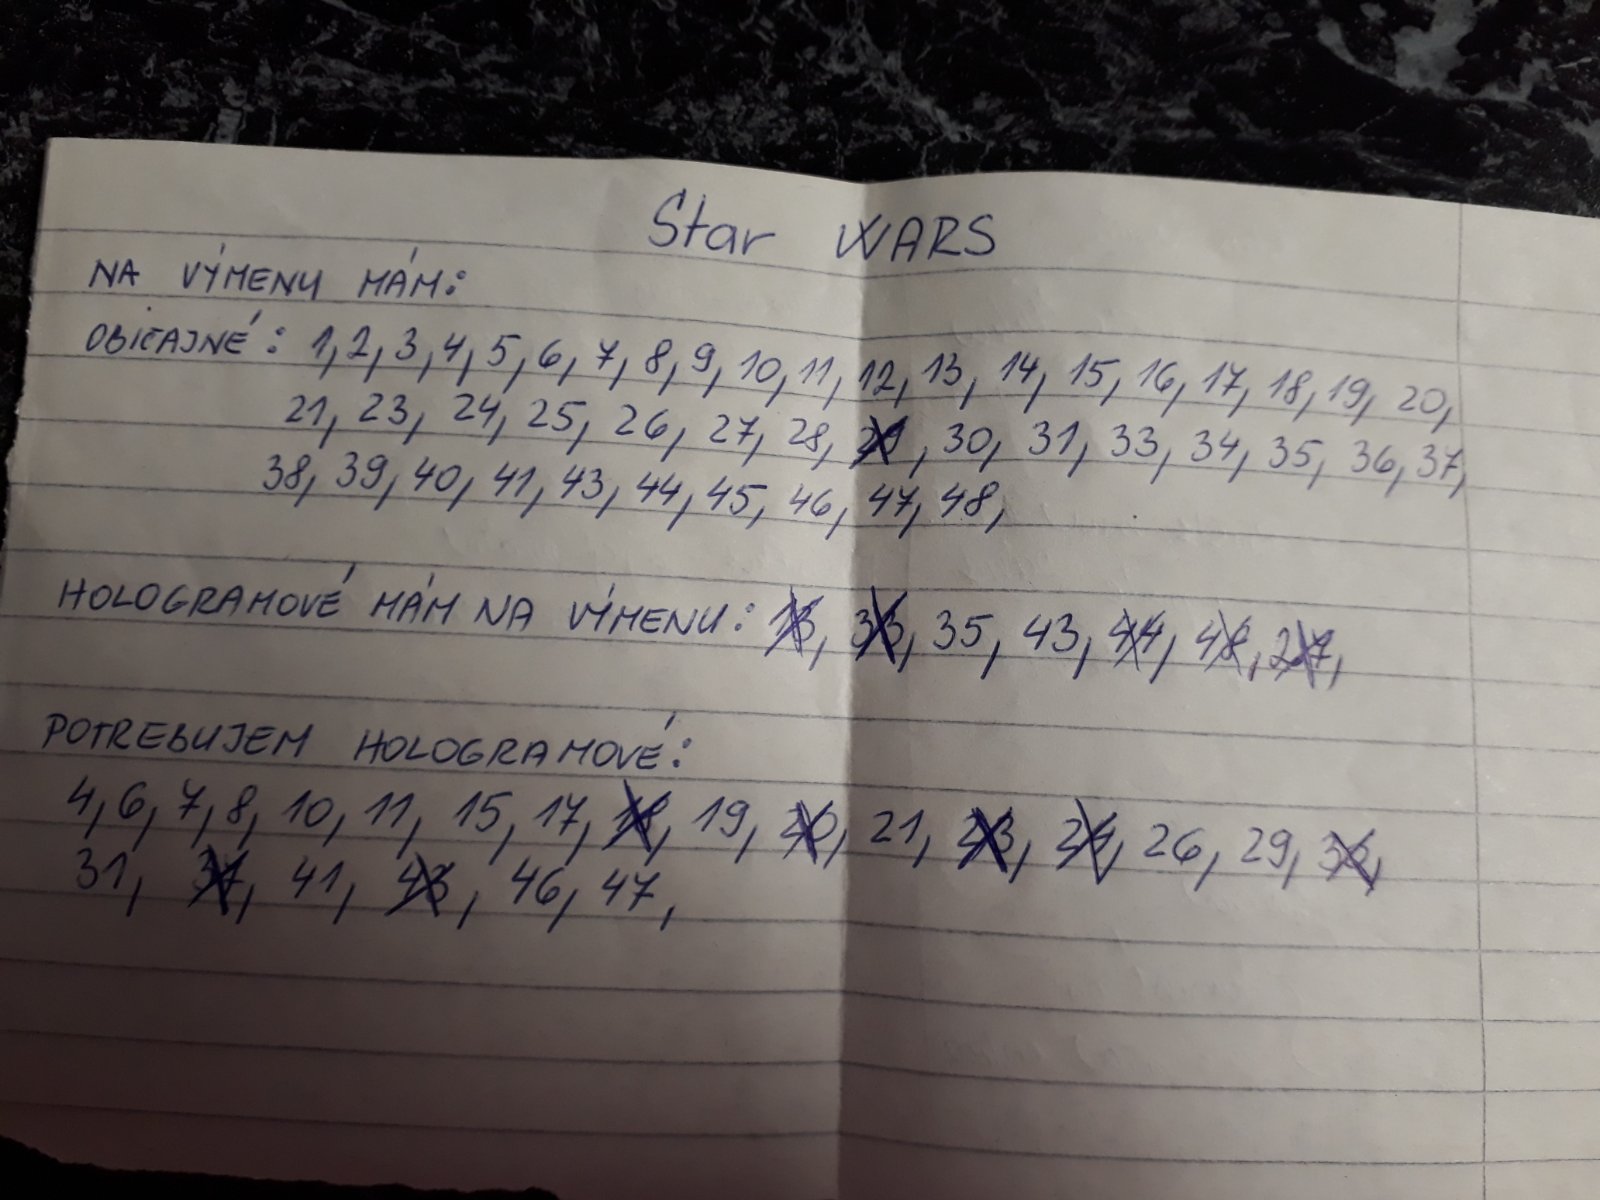 Star WARS
NA VÝMENU MÁM:
OBIČAJNÉ: 1, 2, 3, 4, 5, 6, 7, 8, 9, 10, 11, 12, 13, 14, 15, 16, 17, 18, 19, 20,
21, 23, 24, 25, 26, 27, 28, 29, 30, 31, 33, 34, 35, 36, 37,
38, 39, 40, 41, 43, 44, 45, 46, 47, 48,
HOLOGRAMOVÉ MÁM NA VÝMENU: 13, 33, 35, 43, 44, 48, 27,
POTREBUJEM HOLOGRAMOVÉ:
4, 6, 7, 8, 10, 11, 15, 17, 18, 19, 20, 21, 23, 24, 26, 29,
31, 37, 41, 43, 46, 47,